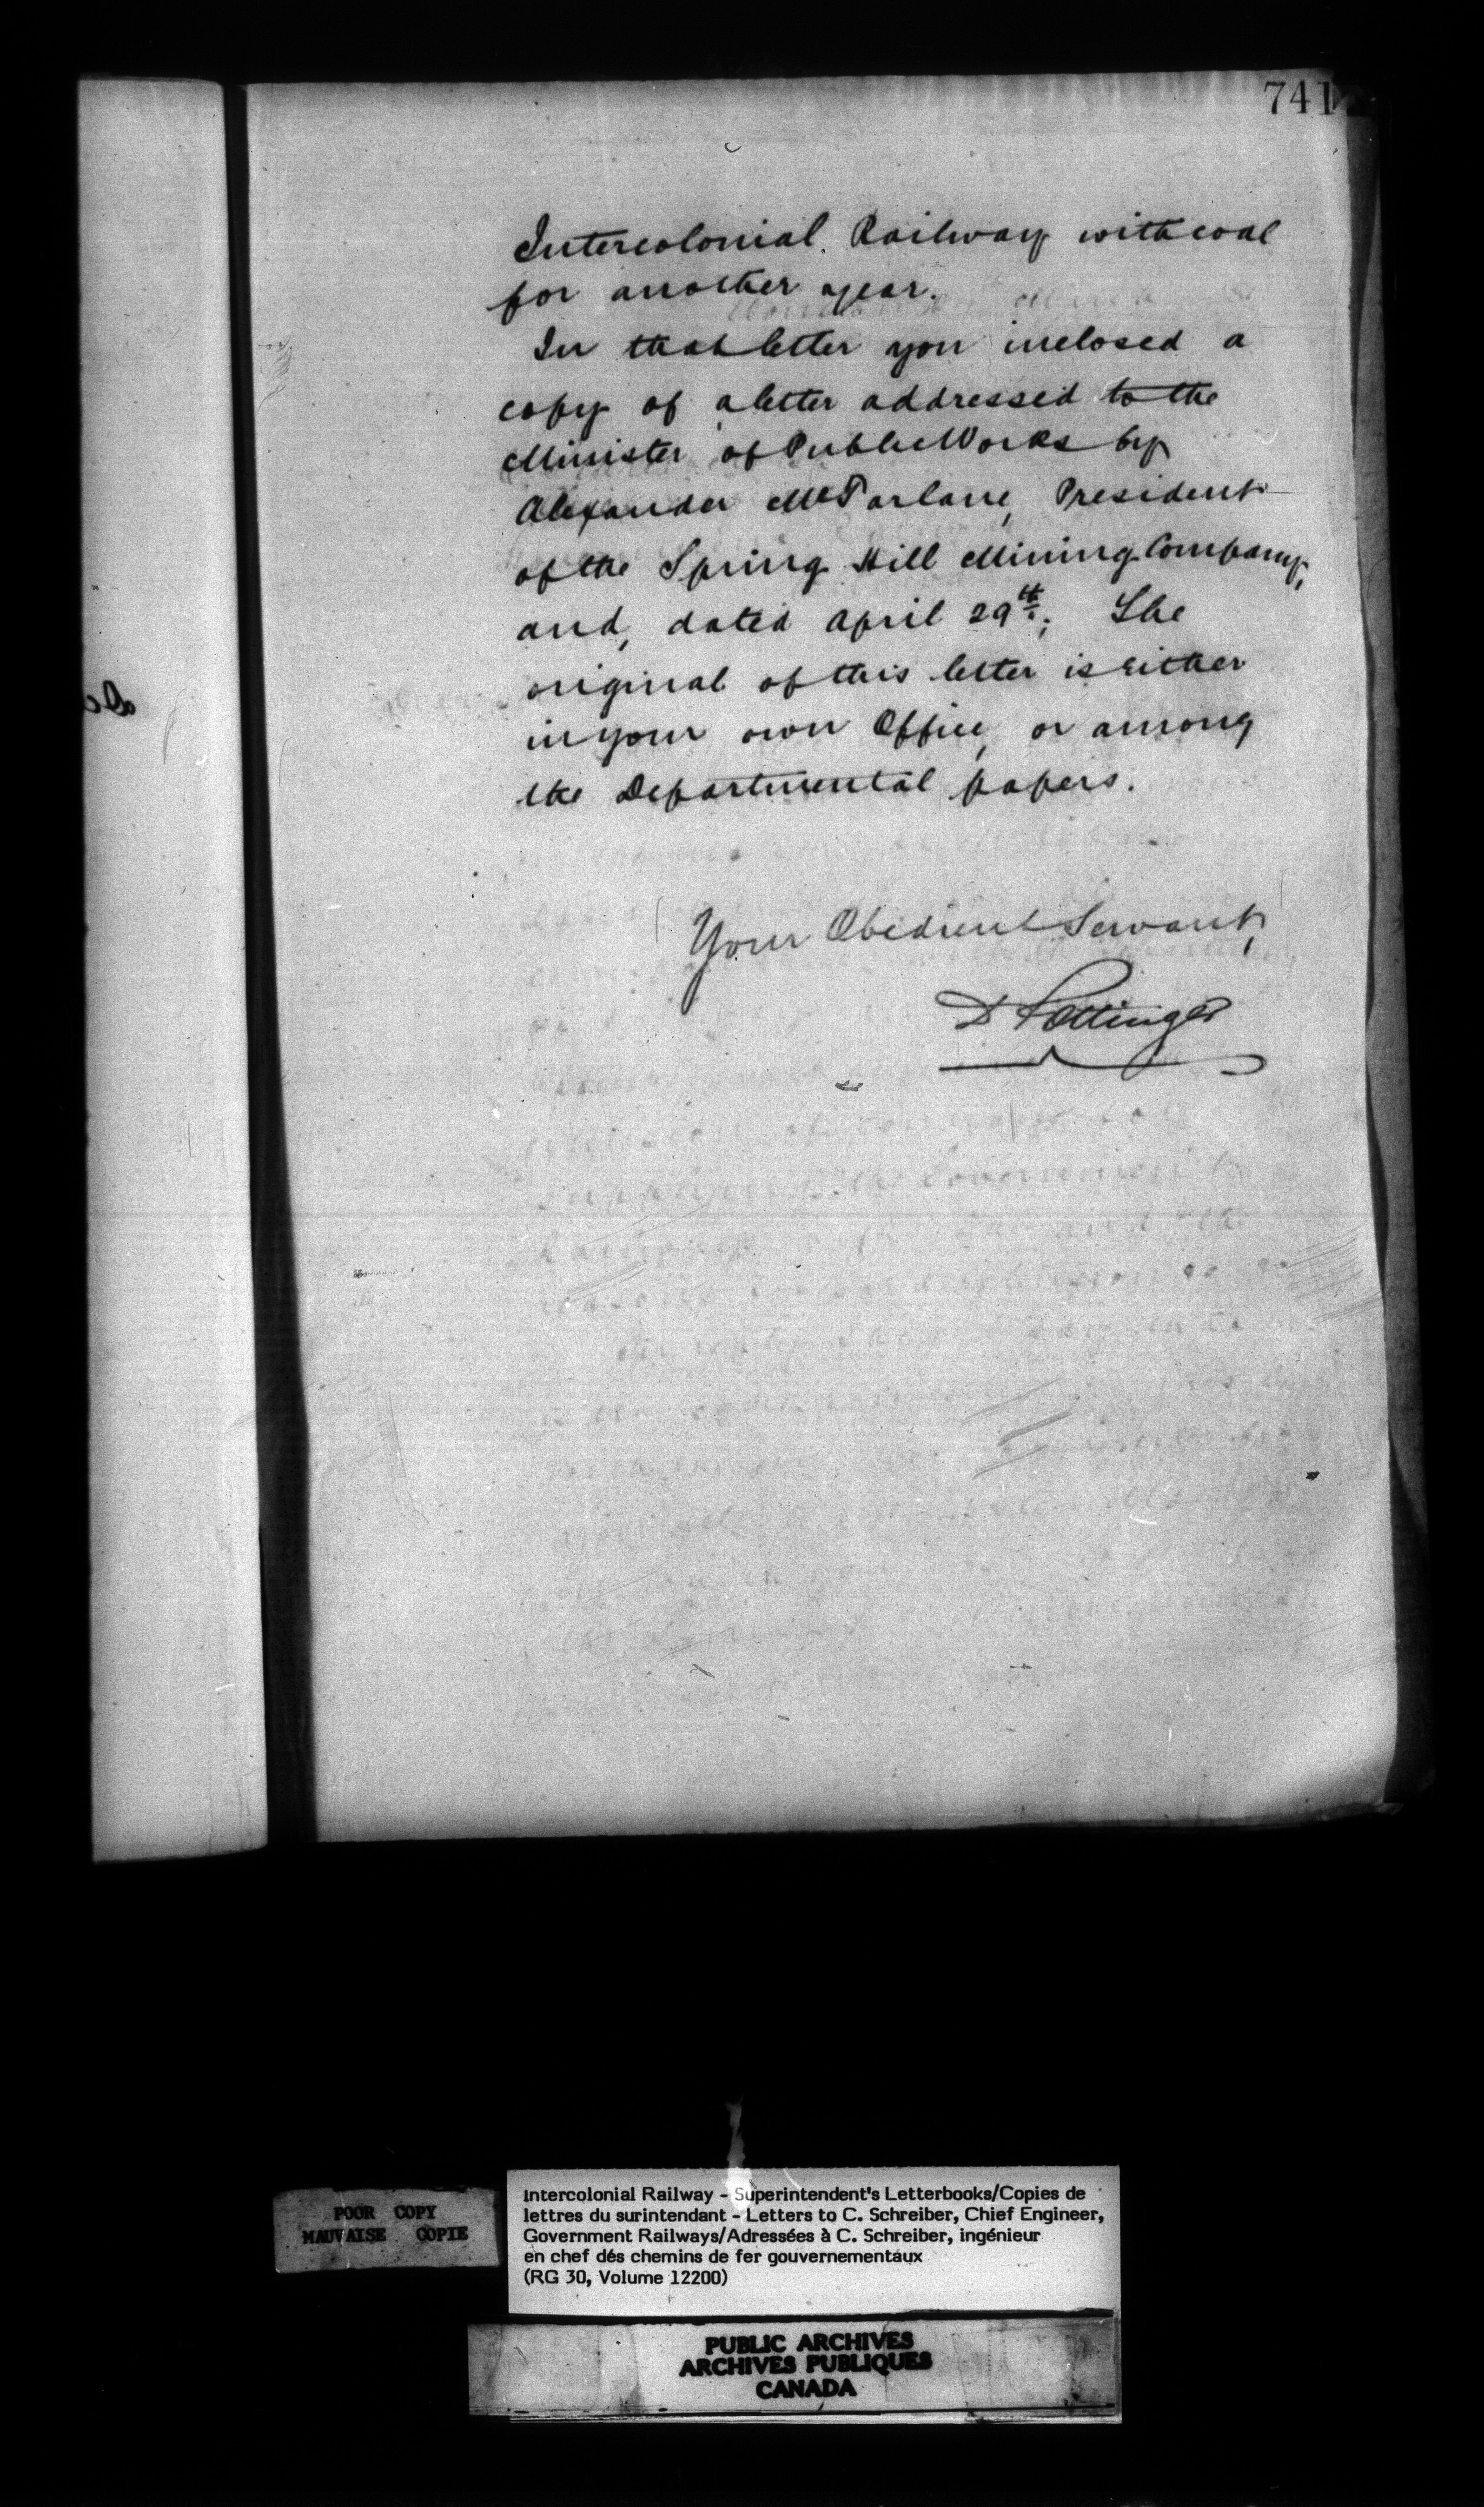 741
Intercolonial Railway with coal
for another year.
In that letter you inclosed a
copy of a letter addressed to the
Minister of Public Works by
Alexander McFarlane, President
of the Spring Hill Mining Company,
and, dated April 29th; The
original of this letter is either
in your own Office, or among
the Departmental papers.
Your Obedient Servant,
D Pottinger
POOR COPY
MAUVAISE COPIE
Intercolonial Railway - Superintendent's Letterbooks/Copies de
lettres du surintendant - Letters to C. Schreiber, Chief Engineer,
Government Railways/Adressées à C. Schreiber, ingénieur
en chef dés chemins de fer gouvernementaux
(RG 30, Volume 12200)
PUBLIC ARCHIVES
ARCHIVES PUBLIQUES
CANADA